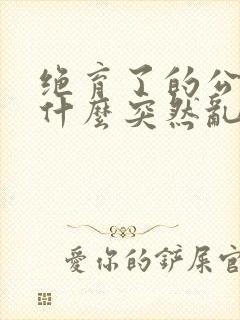 绝育了的公
什麼突然亂
愛你的鏟屎官